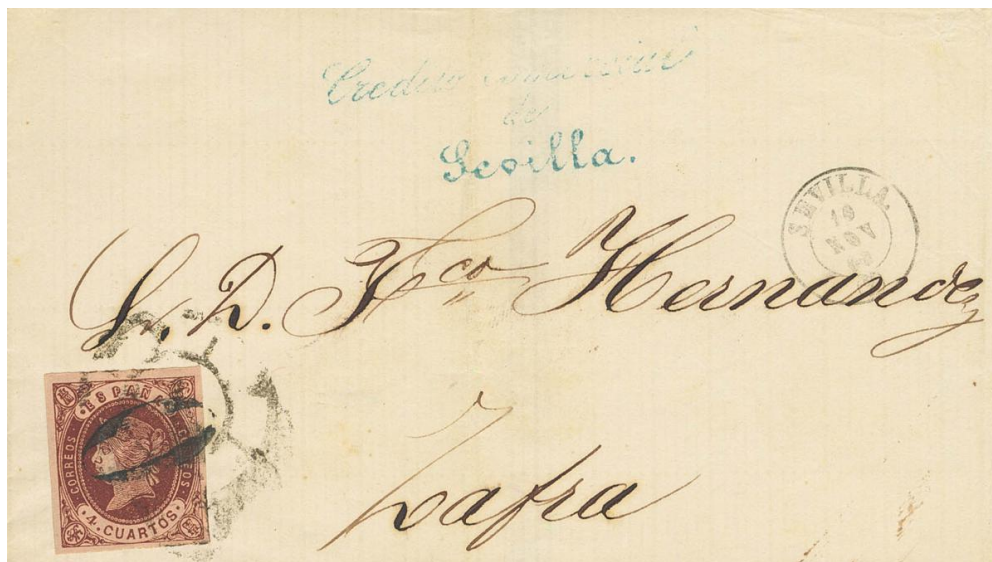 Credito Comercial
de
Sevilla.
SEVILLA.
16
NOV
Sr. D. Fco Hernandez
Zafra
ESPAÑA
CORREOS
4 CUARTOS